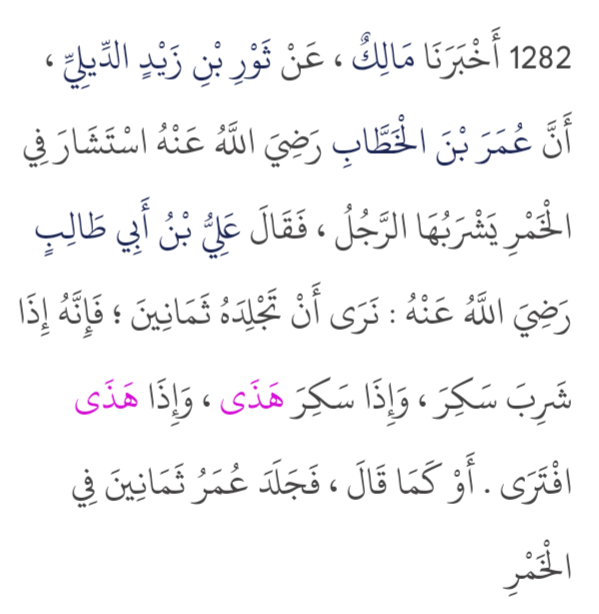 1282 أَخْبَرَنَا مَالِكٌ ، عَنْ ثَوْرِ بْنِ زَيْدٍ الدِّيلِيِّ ،
أَنَّ عُمَرَ بْنَ الْخَطَّابِ رَضِيَ اللَّهُ عَنْهُ اسْتَشَارَ فِي
الْخَمْرِ يَشْرَبُهَا الرَّجُلُ ، فَقَالَ عَلِيُّ بْنُ أَبِي طَالِبٍ
رَضِيَ اللَّهُ عَنْهُ : نَرَى أَنْ تَجْلِدَهُ ثَمَانِينَ ؛ فَإِنَّهُ إِذَا
شَرِبَ سَكِرَ ، وَإِذَا سَكِرَ هَذَى ، وَإِذَا هَذَى
افْتَرَى . أَوْ كَمَا قَالَ ، فَجَلَدَ عُمَرُ ثَمَانِينَ فِي
الْخَمْرِ